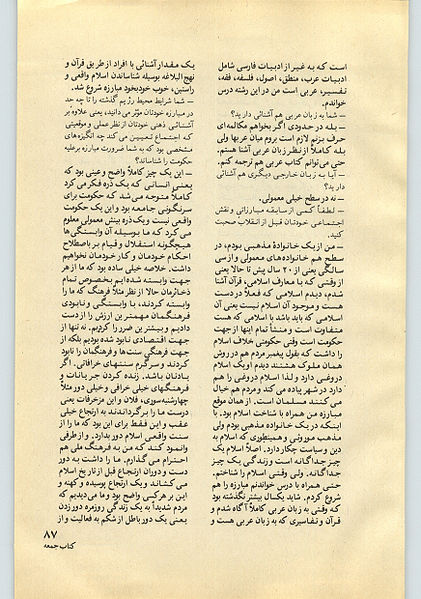 است که به غیر از ادبیات فارسی شامل
ادبیات عرب، منطق، اصول، فلسفه، فقه،
تفسیر، عربی است من در این رشته درس
خواندم.
— شما به زبان عربی هم آشنائی دارید؟
— بله در حدودی اگر بخواهم مکالمه‌ای
حرف بزنم لازم است بروم میان عربها ولی
بله کاملاً از نظر زبان عربی آشنا هستم.
حتی می‌توانم کتاب عربی هم ترجمه کنم.
— آیا به زبان خارجی دیگری هم آشنائی
دارید؟
— نه در سطح خیلی معمولی.
— لطفاً کمی از سابقه مبارزاتی و نقش
اجتماعی خودتان قبل از انقلاب صحبت
کنید.
— من از یک خانوادهٔ مذهبی بودم، در
سطح هم خانواده‌های معمولی و از سی
سالگی یعنی از ۲۰ سال پیش تا حالا یعنی
از وقتی که با معارف اسلامی، قرآن آشنا
شدم، دیدم اسلامی که فعلاً در دست
هست و موجود آن اسلام نیست یعنی آن
اسلامی که باید باشد با اسلامی که هست
متفاوت است و منشأ تمام اینها از جهت
حکومت است وقتی حکومتی خلاف اسلام
را داشت که بقول پیغمبر مردم هم در روش
همان ملوک هستند دیدم او یک اسلام
دروغی دارد و لذا اسلام دروغی را هم
دارد در شهر پیاده می‌کند و مردم هم خیال
می‌کنند مسلمان است. از همان موقع
مبارزه من همراه با شناخت اسلام بود. با
اینکه در یک خانواده مذهبی بودم ولی
مذهب موروثی و همینطوری که اسلام به
دین و سیاست چکار دارد. اصلاً اسلام یک
چیز جداگانه است و زندگی یک چیز
جداگانه. ولی وقتی اسلام را شناختم.
حتی همراه با درس خواندنم مبارزه را هم
شروع کردم. شاید یکسال بیشتر نگذشته بود
که وقتی به زبان عربی کاملاً آگاه شدم و
قرآن و تفاسیری که به زبان عربی هست و
یک مقدار آشنائی با افراد از طریق قرآن و
نهج البلاغه بوسیله شناساندن اسلام واقعی و
راستین، خوب خودبخود مبارزه شروع شد.
— شما شرایط محیط رژیم گذشته را تا چه حد
در مبارزه خودتان مؤثر می‌دانید، یعنی علاوه بر
آشنائی ذهنی خودتان از نظر عملی و موقعیتی
که اجتماع تعیین می‌کند چه انگیزه‌های
مشخصی بود که به شما ضرورت مبارزه برعلیه
حکومت را شناساند؟
— این یک چیز کاملاً واضح و عینی بود که
یعنی انسانی که یک ذره فکر می‌کرد
کاملاً متوجه می‌شد که حکومت برای
سرنگونی جامعه بود و این یک حکومت
واقعی نیست و یک ذره بینش معمولی معلوم
می‌کرد که ما بوسیله آن وابستگی‌ها
هیچگونه استقلال و قیام بر باصطلاح
احکام خودمان و کار خودمان نخواهیم
داشت. خلاصه خیلی ساده بود که ما از هر
جهت وابسته شده‌ایم بخصوص تمام
ذخائرمان حالا از نظر مثلاً فرهنگ که ما را
وابسته کردند، با وابستگی و نابودی
فرهنگمان مهمترین ارزش را از دست
دادیم و بیشترین ضرر را کردیم. نه تنها از
جهت اقتصادی نابود شده بودیم بلکه از
جهت فرهنگی سنت‌ها و فرهنگمان را نابود
کردند و سرگرم سنتهای خرافاتی. اگر
یادتان باشد. زنده کردن جریانات و
فرهنگهای خیلی خرافی و خیلی دور مثلاً
چهارشنبه‌سوری، فلان و این مزخرفات یعنی
درست ما را برگرداندند به ارتجاع خیلی
عقب و این فقط برای این بود که ما را از
سنت واقعی اسلام دور بدارد. و از طرفی
وانمود کند که من به فرهنگ ملی هم
احترام می‌گذارم. ما را داشت به دور
دست و دوران ارتجاع قبل از تاریخ اسلام
می‌کشاند و یک ارتجاع پوسیده و کهنه و
این بر هر کسی واضح بود و ما می‌دیدیم که
مردم شدیداً به یک زندگی روزمره دور زدن
یعنی یک دور باطل از شکم به فعالیت و از
۸۷
کتاب جمعه